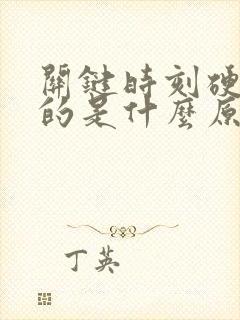 關鍵時刻硬
的是什麼原
丁英